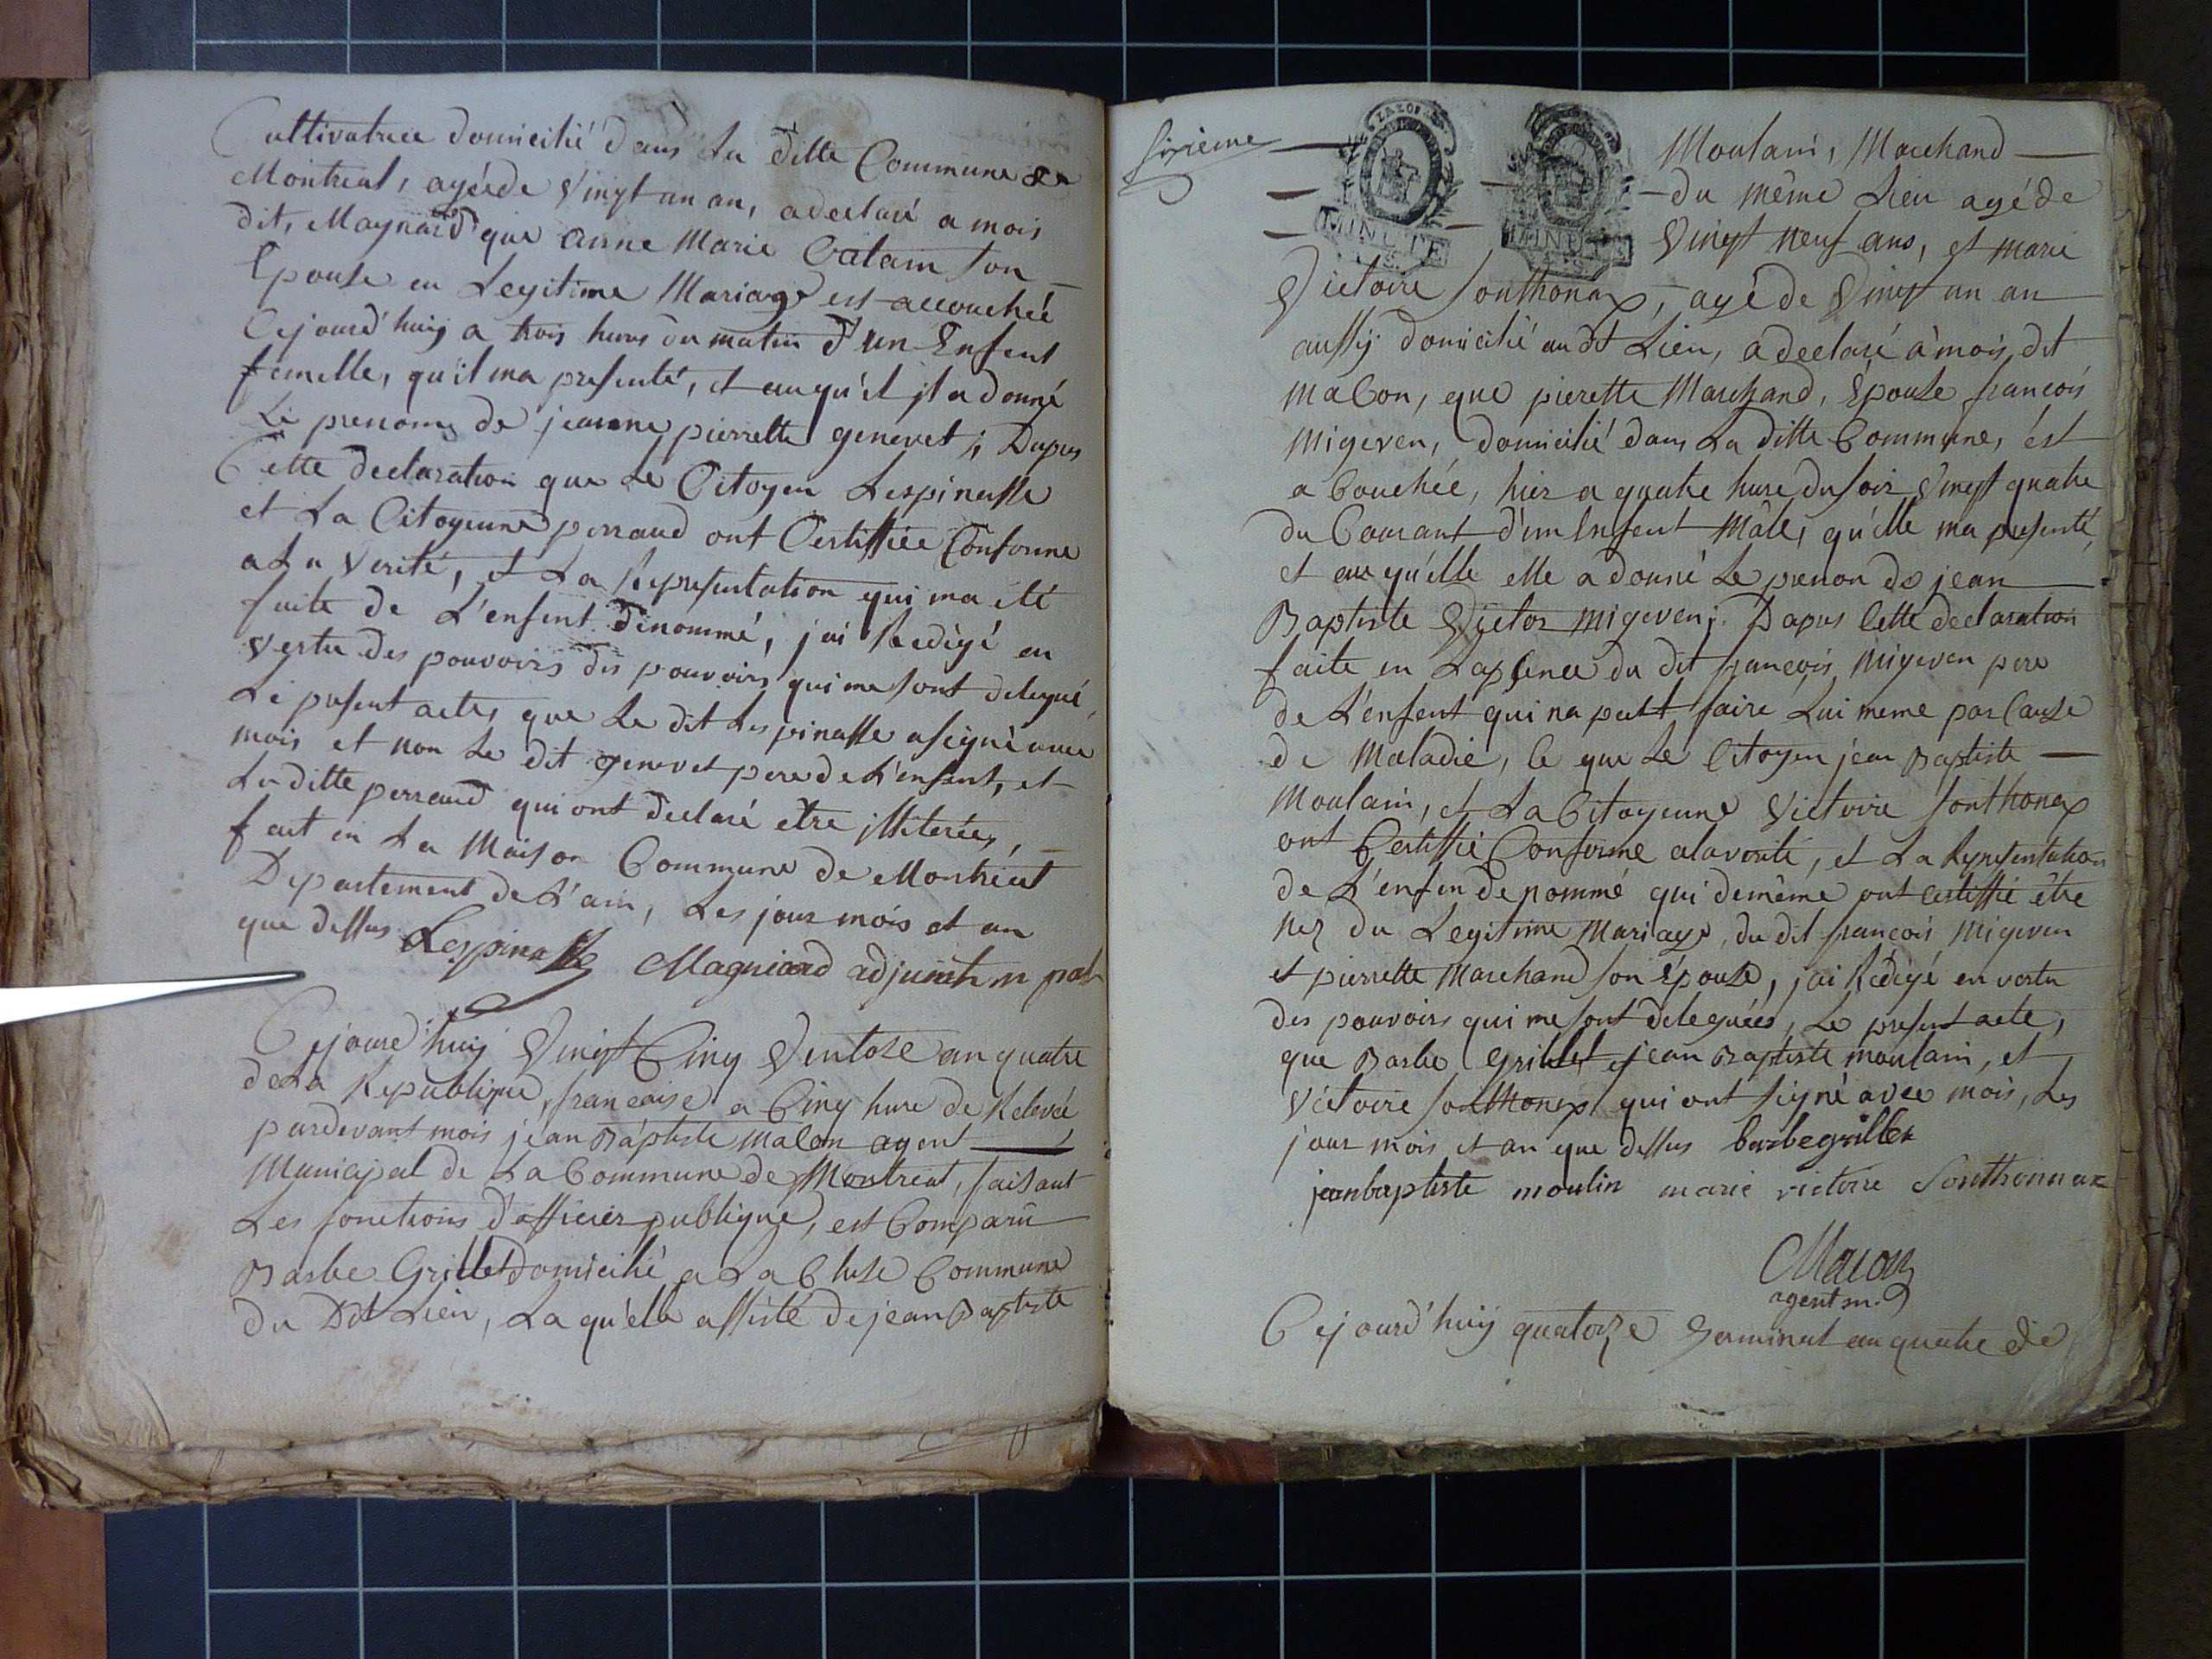 Cultivatrice domicilié dans La ditte Commune de
Montreal, agéede Vingt un an, adeclaré a mois
dit, Maynard que anne Marie Catain son
Epouse en Legitime Mariage est accouchée
Cejourd'huij a trois hures du matin d'un Enfent
femelle, qu'il ma presenté, et auqu'el jl a donné
Le prenoms de jeanne pierrette genevet ; Dapres
Cette declaration que Le Citoyen Lespinasse
et La Citoyenne perraud ont Certiffiée Conforme
a La Verité, et La Representation qui ma eté
faite de L'enfent denommé, jai Redigé en
Vertu des pouvoirs des pouvoirs qui me sont delegué,
Le present acte, que Le dit Lespinasse asigné avec
mois et non Le dit genevet pere de L'enfent, et
La ditte perraud qui ont declaré etre jlliterées,
fait en La Maison Commune de Montréal
Departement de L'ain, Les jour mois et an
que dessus Lespinasse Magniard adjoint m
Cejourd'huij Vingt Cinq Ventose an quatre
de La Republique francaise a Cinq hure de Relevée
pardevant mois jéan Baptiste Maton agent
Municipal de La Commune de Montreal, faisant
Les fonctions d'officier publique, est Comparû
Barbe Grillet Domicilié a La Cluse Commune
du Dit Lieu, La qu'elle assisté de jean Baptiste
sixieme
MINUTE
MINUTE
Moulain, Marchand
du même Lieu agé de
Vingt neuf ans, et marie
Victoire Sonthonax, agé de Vingt un an
aussij domicilié au dt Lieu, a declaré à mois, dit
Macon, que pierette Marchand, Epouse francois
Migeven, domicilié dans La ditte Commune, ést
a Couchée, hier a quatre hure du soir Vingt quatre
du Courant d'un Enfent Mâle, qu'elle ma presenté,
et au qu'elle elle a donné Le prenon de jean
Baptiste Victor Migeven ;. Dapres Cette declaration
faite en Lapsence du dit francois Migeven pere
de L'enfent qui na peut faire Lui meme par Cause
de Maladie, Ce que Le Citoyen jean Baptiste
Moulain, et La Citoyenne Victoire Sonthonax
ont Certiffié Conforme alaverité, et La Representation
de L'enfen denommé qui demême ont certiffié être
nez du Legitime Mariage, du dit francois Migeven
et pierrette Marchand son Epouse, jai Redigé en vertu
des pouvoirs qui me sont deleguées, Le present acte,
que Barbe Grillet jean Baptiste moulain, et
Victoire Sonthonax qui ont signé avec mois, Les
jour mois et an que dessus barbegrillet
jeanbaptiste moulin marie victoire Sonthonnax
Macon
agent m.
Cejourd'huij quatorze Germinal an quatre de